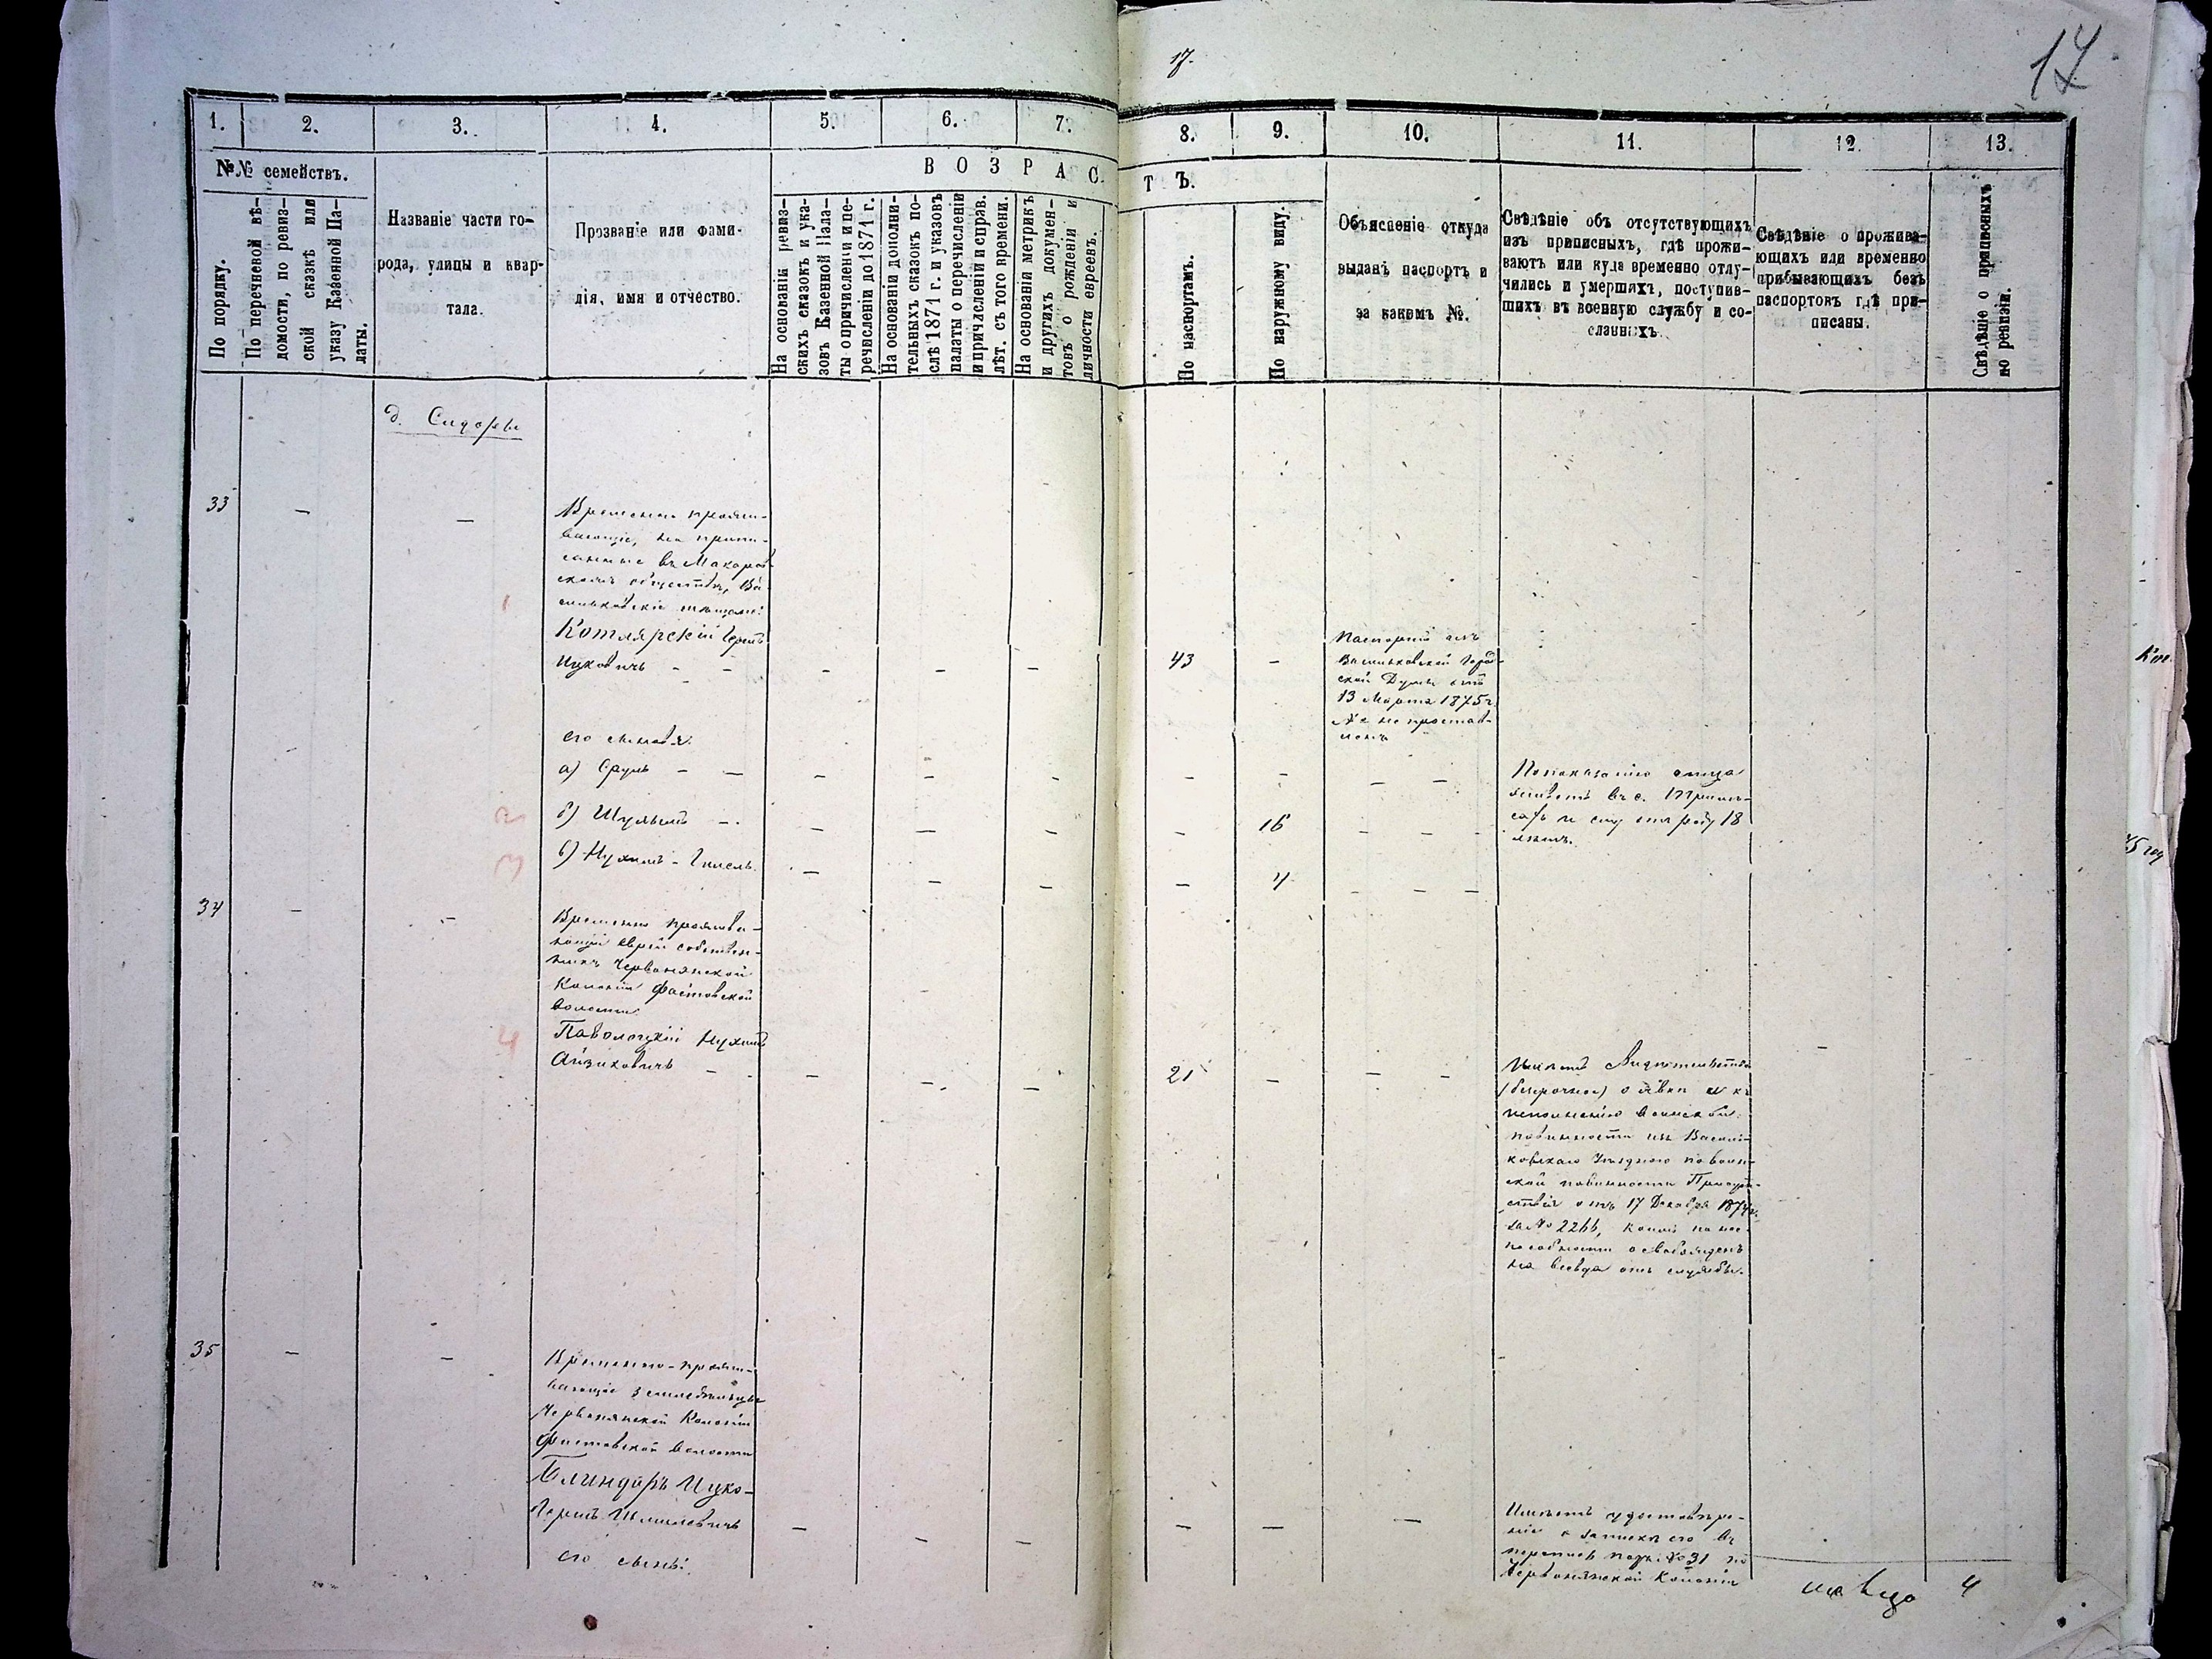 17.
17
1. 2. 3. 4. 5. 6. 7. 8. 9. 10. 11. 12. 13.
№№ семействъ.
В О З Р А С Т Ъ.
По порядку.
По перечневой вѣ-
домости, по ревиз-
ской сказкѣ или
указу Казенной Па-
латы.
Названіе части го-
рода, улицы и квар-
тала.
Прозваніе или фами-
лія, имя и отчество.
На основаніи ревиз-
скихъ сказокъ и ука-
зовъ Казенной Пала-
ты о причисленіи и пе-
речисленіи до 1871 г.
На основаніи дополни-
тельныхъ сказокъ по-
слѣ 1871 г. и указовъ
палаты о перечисленіи
и причисленіи и справ.
лѣт. съ того времени.
На основаніи метрикъ
и другихъ докумен-
товъ о рожденіи и
личности евреевъ.
По паспортамъ.
По наружному виду.
Объясненіе откуда
выданъ паспортъ и
за какимъ №.
Свѣдѣніе объ отсутствующихъ
изъ приписныхъ, гдѣ прожи-
ваютъ или куда временно отлу-
чились и умершихъ, поступив-
шихъ въ военную службу и со-
сланныхъ.
Свѣдѣніе о прожива-
ющихъ или временно
прибывающихъ безъ
паспортовъ гдѣ при-
писаны.
Свѣдѣніе о приписныхъ
по ревизіи.
д. Сидоры
33 — —
Временно прожи-
вающіе, не припи-
санные въ Макаров-
скомъ обществѣ, Ва-
сильковскіе мѣщане:
1
Котлярскій Гершъ
Ицковичъ — — — — — 43 —
Паспортъ изъ
Васильковской Город-
ской Думы отъ
13 Марта 1875 г.
№ не простав-
ленъ
его сыновья:
а) Сруль — — — — — — — — —
По показанію отца
живетъ въ с.
и ему отъ роду 18
лѣтъ.
2 б) Шульимъ — — — — — 16 — — —
3 в) Нухимъ-Гилель — — — — 4 — — —
34 — —
Временно прожива-
ющій еврей собствен-
никъ Червонянской
Колоніи Фастовской
волости
4
Паволоцкій Нухимъ
Айзиковичъ — — — — — 21 — — —
Имѣетъ Свидѣтельство
(безсрочное) о явкѣ къ
исполненію воинской
повинности изъ Василь-
ковскаго Уѣзднаго по воин-
ской повинности Присут-
ствія отъ 17 Декабря 1874 г.
за № 2266, коимъ по нес-
пособности освобожденъ
на всегда отъ службы.
35 — —
Временно-прожи-
вающіе земледѣльцы
Червонянской Колоніи
Фастовской волости
Блиндеръ Ицко-
Гершъ Шмилевичъ — — — — — —
Имѣетъ удостовѣре-
ніе о запискѣ его въ
перепись подъ № 31 по
Червонянской Колоніи
его сынъ:
4